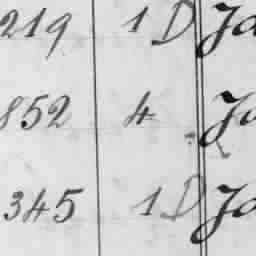 219 1 D Ja
852 4 Ja
345 1 D Ja